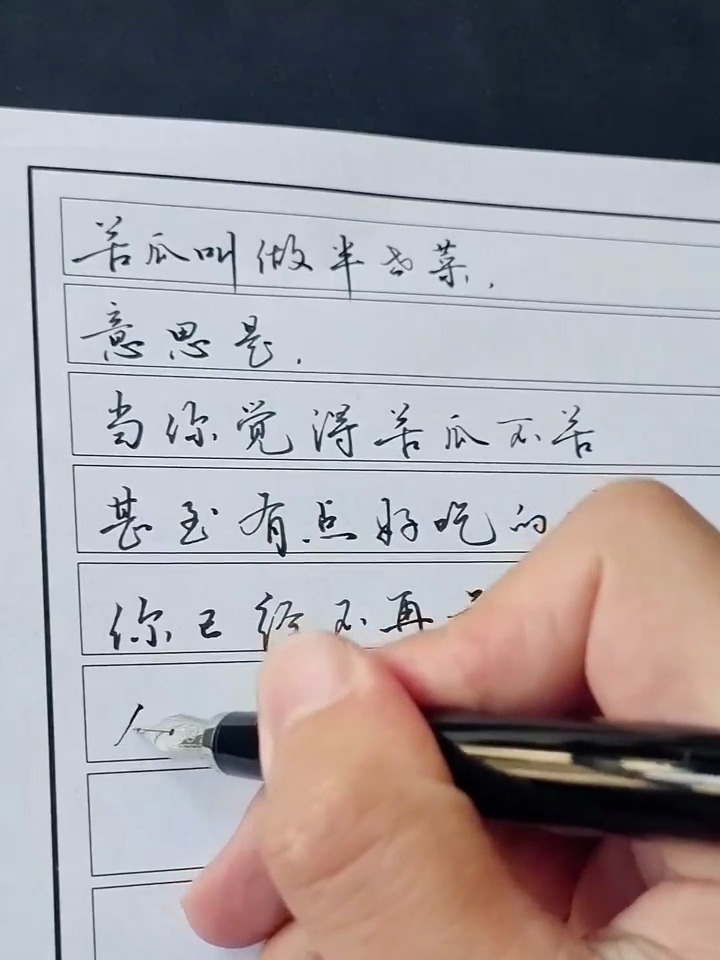 苦瓜叫做半世菜，
意思是，
当你觉得苦瓜不苦
甚至有点好吃的
你已经不再